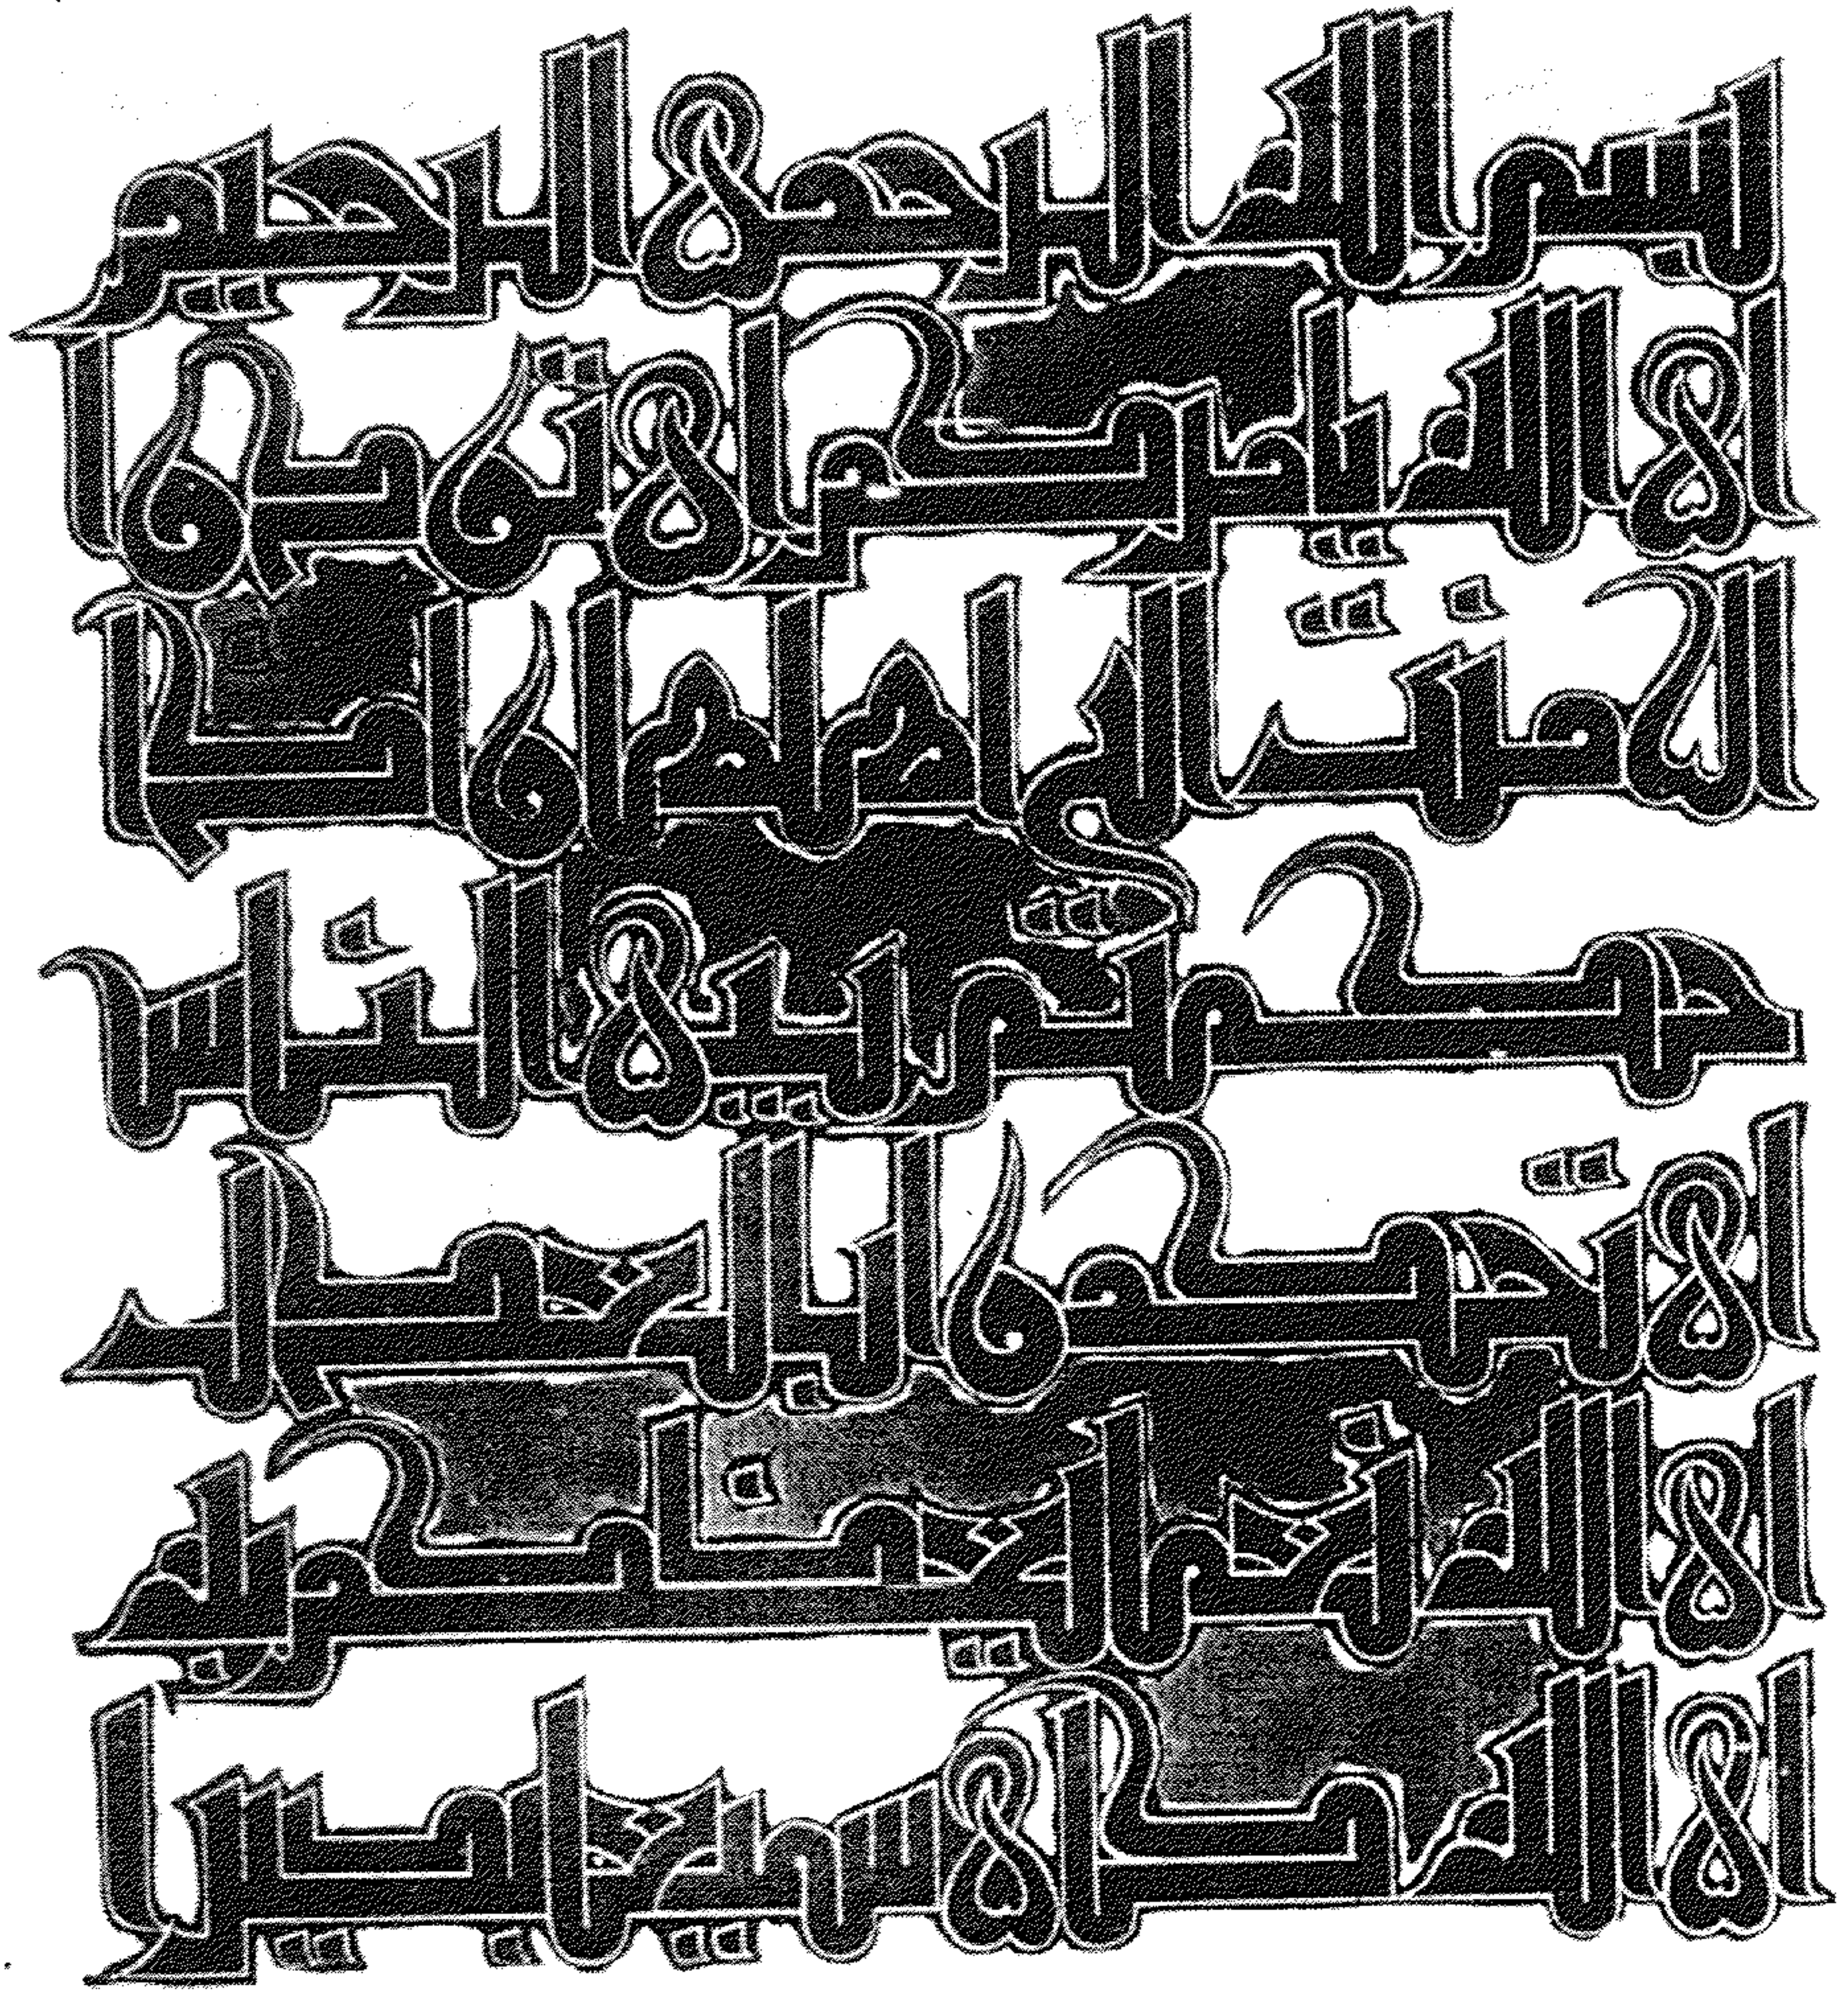 بسم الله الرحمن الرحيم
ان الله يامركم ان تودوا
الامنت الى اهلها واذا
حكمتم بين الناس
ان تحكموا بالعدل
ان الله نعما يعظكم به
ان الله كان سميعا بصيرا